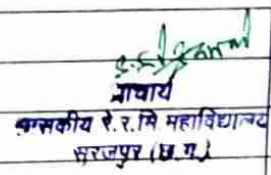 प्राचार्य
शासकीय रे. र. मि महाविद्यालय
सूरजपुर (छ.ग.)